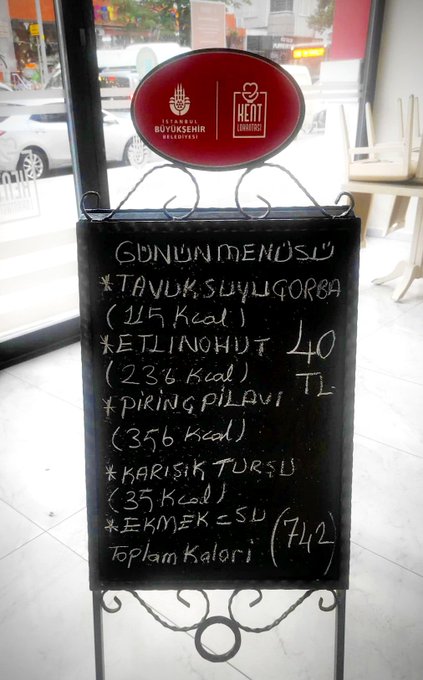 İSTANBUL
BÜYÜKŞEHİR
BELEDİYESİ
KENT
LOKANTASI
GÜNÜN MENÜSÜ
*TAVUK SUYU ÇORBA
(115 Kcal)
*ETLİ NOHUT 40
(236 Kcal) TL
*PİRİNÇ PİLAVI
(356 Kcal)
*KARIŞIK TURŞU
(35 Kcal)
*EKMEK = SU
Toplam Kalori (742)